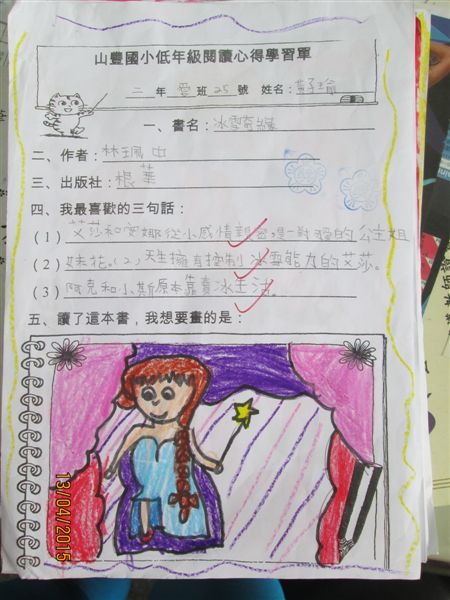 山豐國小低年級閱讀心得學習單
二 年 愛 班 25 號 姓名：黃子瑜
一、書名：冰雪奇緣
二、作者：林珮
三、出版社：根華
四、我最喜歡的三句話：
（1）艾莎和安娜從小感情親密是一對的公主姐
（2）妹花。(2) 天生擁有控制冰雪能力的艾莎。
（3）阿克和小斯原本靠賣冰生活。
五、讀了這本書，我想要畫的是：
13/04/2015